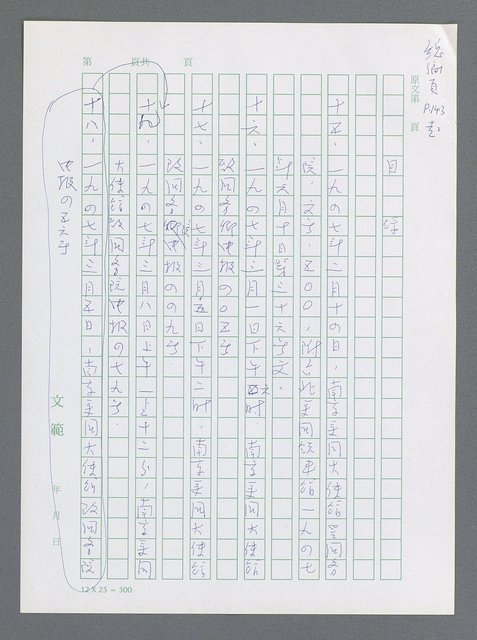 總編頁 P.143 起
原文第　頁
目　錄
十五、一九四七年二月十四日，南京美囯大使馆呈囯务
院，文字，五〇〇，附台北美囯领事馆一九四七
年六月十日第三十六号文。
十六、一九四七年三月一日下午六时，南京美囯大使馆
致囯务卿电报四〇五号
十七、一九四七年三月五日下午二时，南京美囯大使馆
致囯务院电报四四九号
十九、一九四七年三月八日上午一点十二分，南京美囯
大使馆致囯务院电报四七九号
十八、一九四七年三月五日，南京美囯大使馆致囯务院
电报四五六号
第　頁共　頁
文範
年　月　日
12 X 25 = 300